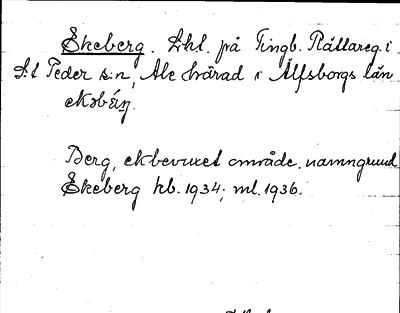 Ekeberg. Lhl. på Tingb. Rättareg. i
S:t Peder s:n, Ale härad i Älfsborgs län
Berg, ekbevuxet område, namngrund
Ekeberg hb. 1934; ml. 1936.